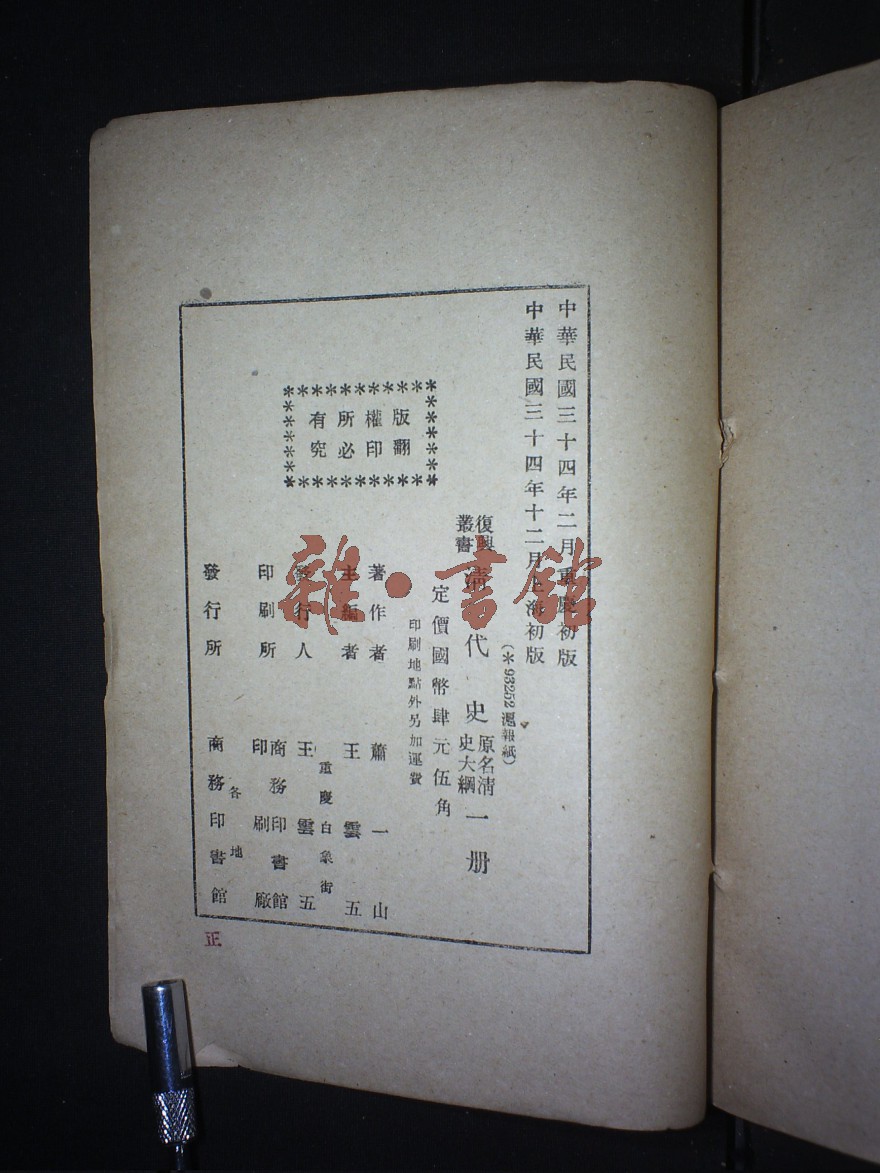 中華民國三十四年二月重慶初版
中華民國三十四年十二月上海初版
(＊93252滬報紙)
復興叢書
清代史 原名清史大綱 一册
定價國幣肆元伍角
印刷地點外另加運費
版權所有
翻印必究
著作者 蕭一山
主編者 王雲五
重慶白象街
發行人 王雲五
印刷所 商務印書館印刷廠
各地
發行所 商務印書館
正
雜·書館